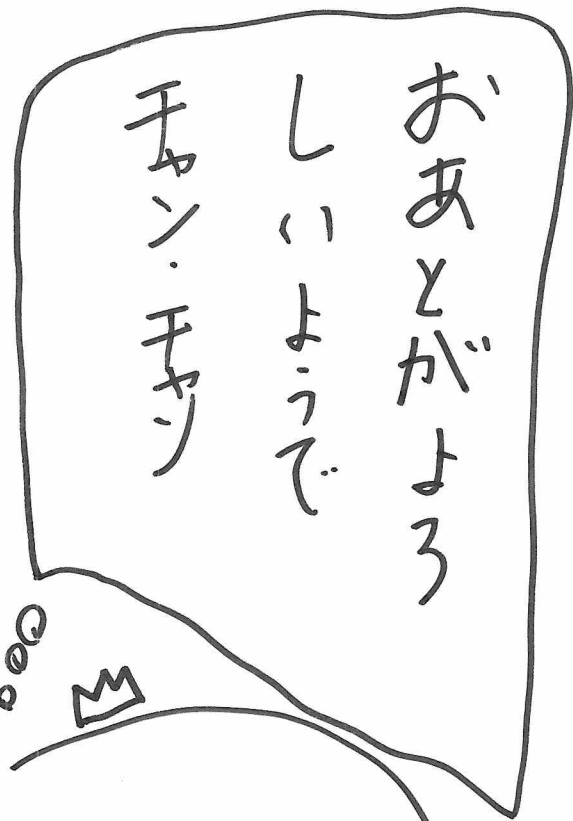 おあとがよろ
しいようで
チャン・チャン